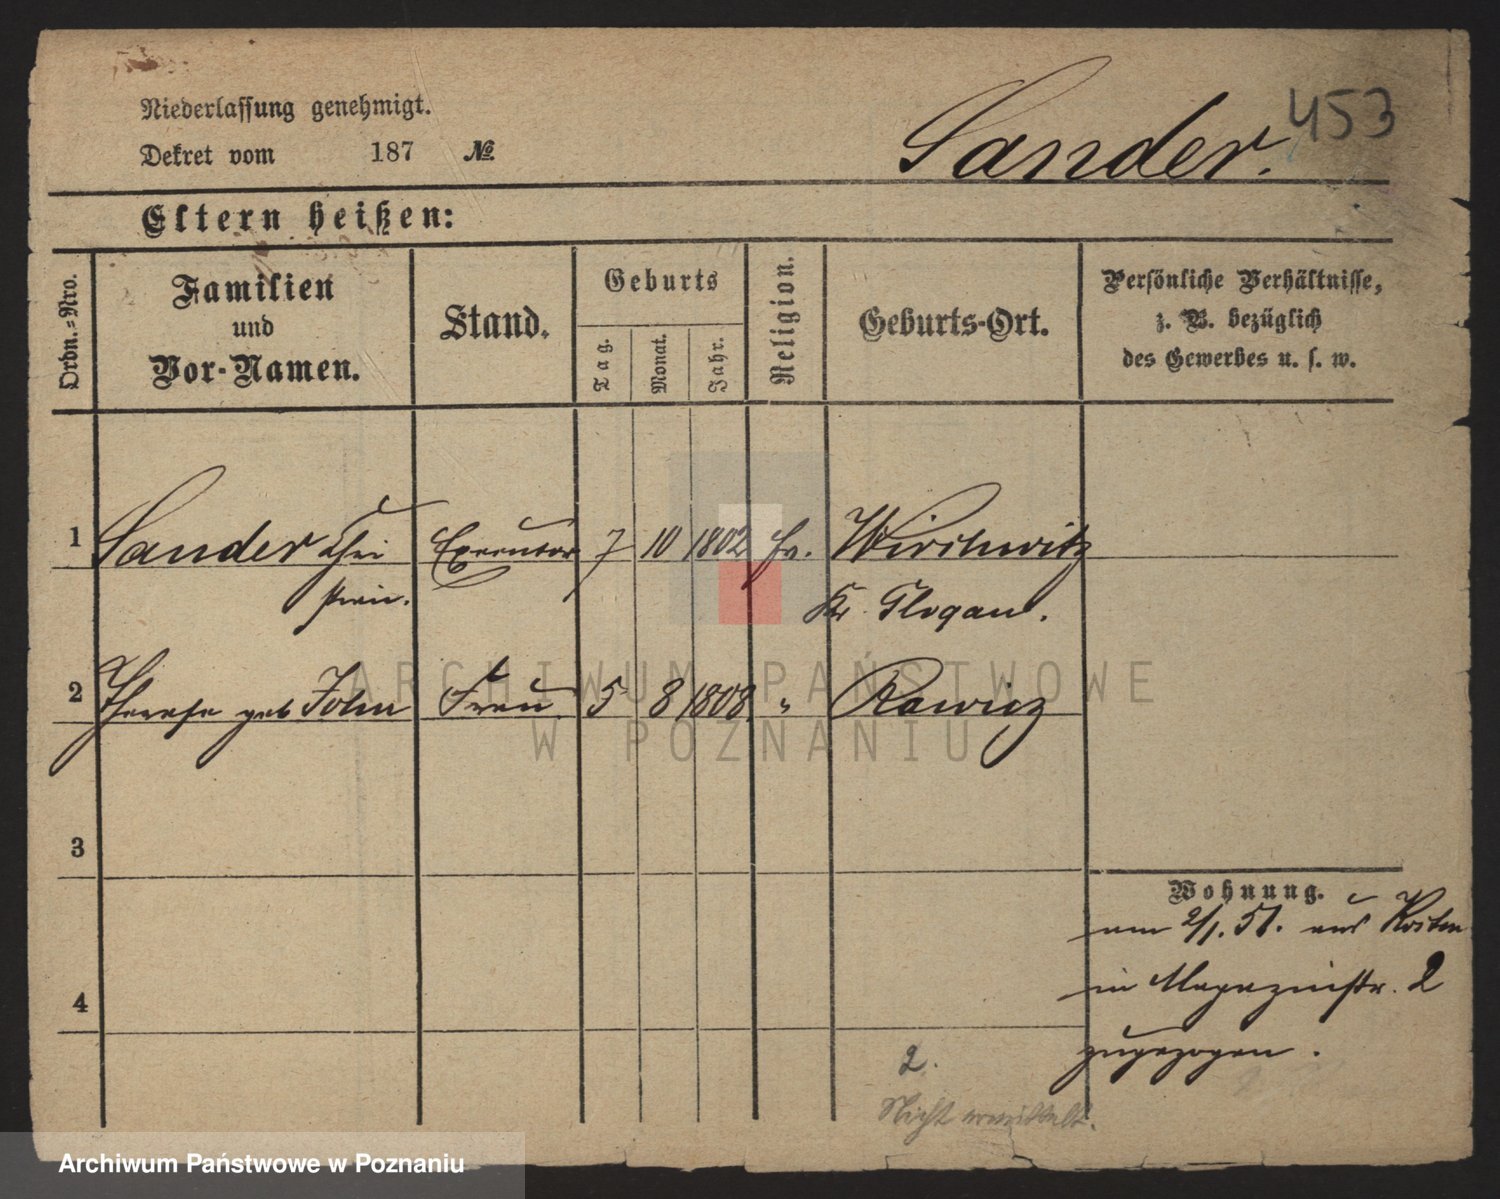 Niederlassung genehmigt.
Dekret vom 187 №
Sander.
453
Eltern heißen:
Ordn.-Nro.
Familien
und
Vor-Namen.
Stand.
Geburts
Tag.
Monat.
Jahr.
Religion.
Geburts-Ort.
Persönliche Verhältnisse,
z. B. bezüglich
des Gewerbes u. s. w.
1 Sander Chri Executor 7 10 1802 Ev. Wirchwitz
stian. Kr. Glogau.
2 Therese geb John Frau 5 8 1808 " Rawicz
3
Wohnung.
am 2/1. 51. aus Kosten
4
in Magazinstr. 2
zugezogen.
2.
Nicht ermittelt.
ARCHIWUM PAŃSTWOWE
W POZNANIU
Archiwum Państwowe w Poznaniu